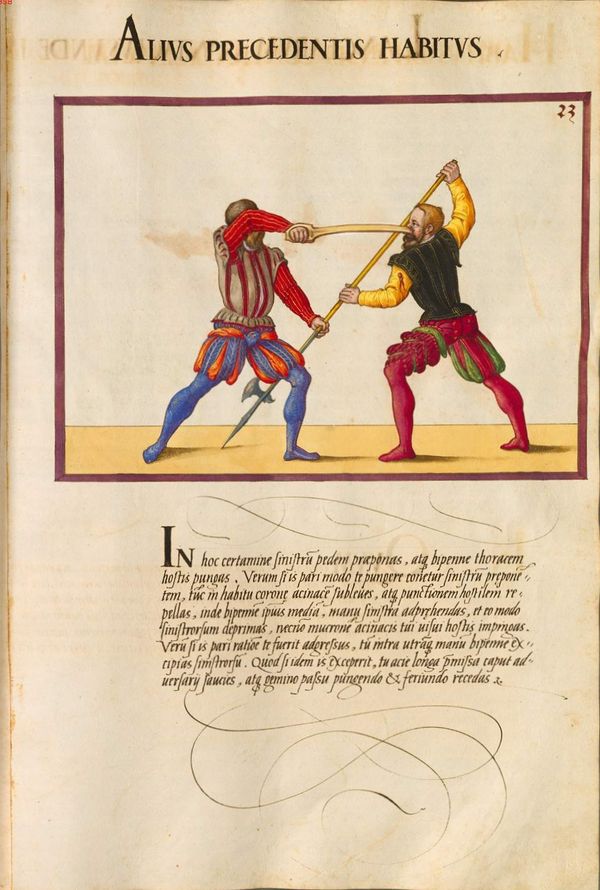 ALIVS PRECEDENTIS HABITVS
23
IN hoc certamine sinistrũ pedem præponas, atq̃ bipenne thoracem
hostis pungas. Verum si is pari modo te pungere conetur sinistrũ prepone-
tem, tũc in habitu coronę acinacẽ subleues, atq̃ punctionem hostilem re-
pellas, inde bipennẽ ipsius mediã, manu sinistra adprẹhendas, et eo modo
sinistrorsum deprimas, necnõ mucronẽ acinacis tui uisui hostis impingas.
Verũ si is pari ratiõe te fuerit adgressus, tu intra utramq̃ manũ bipennẽ ex-
cipias sinistrorsũ. Quod si idem is exceperit, tu acie longa p̃missa caput ad-
versarij saucies, atq̃ gemino passu pungendo & feriundo recedas